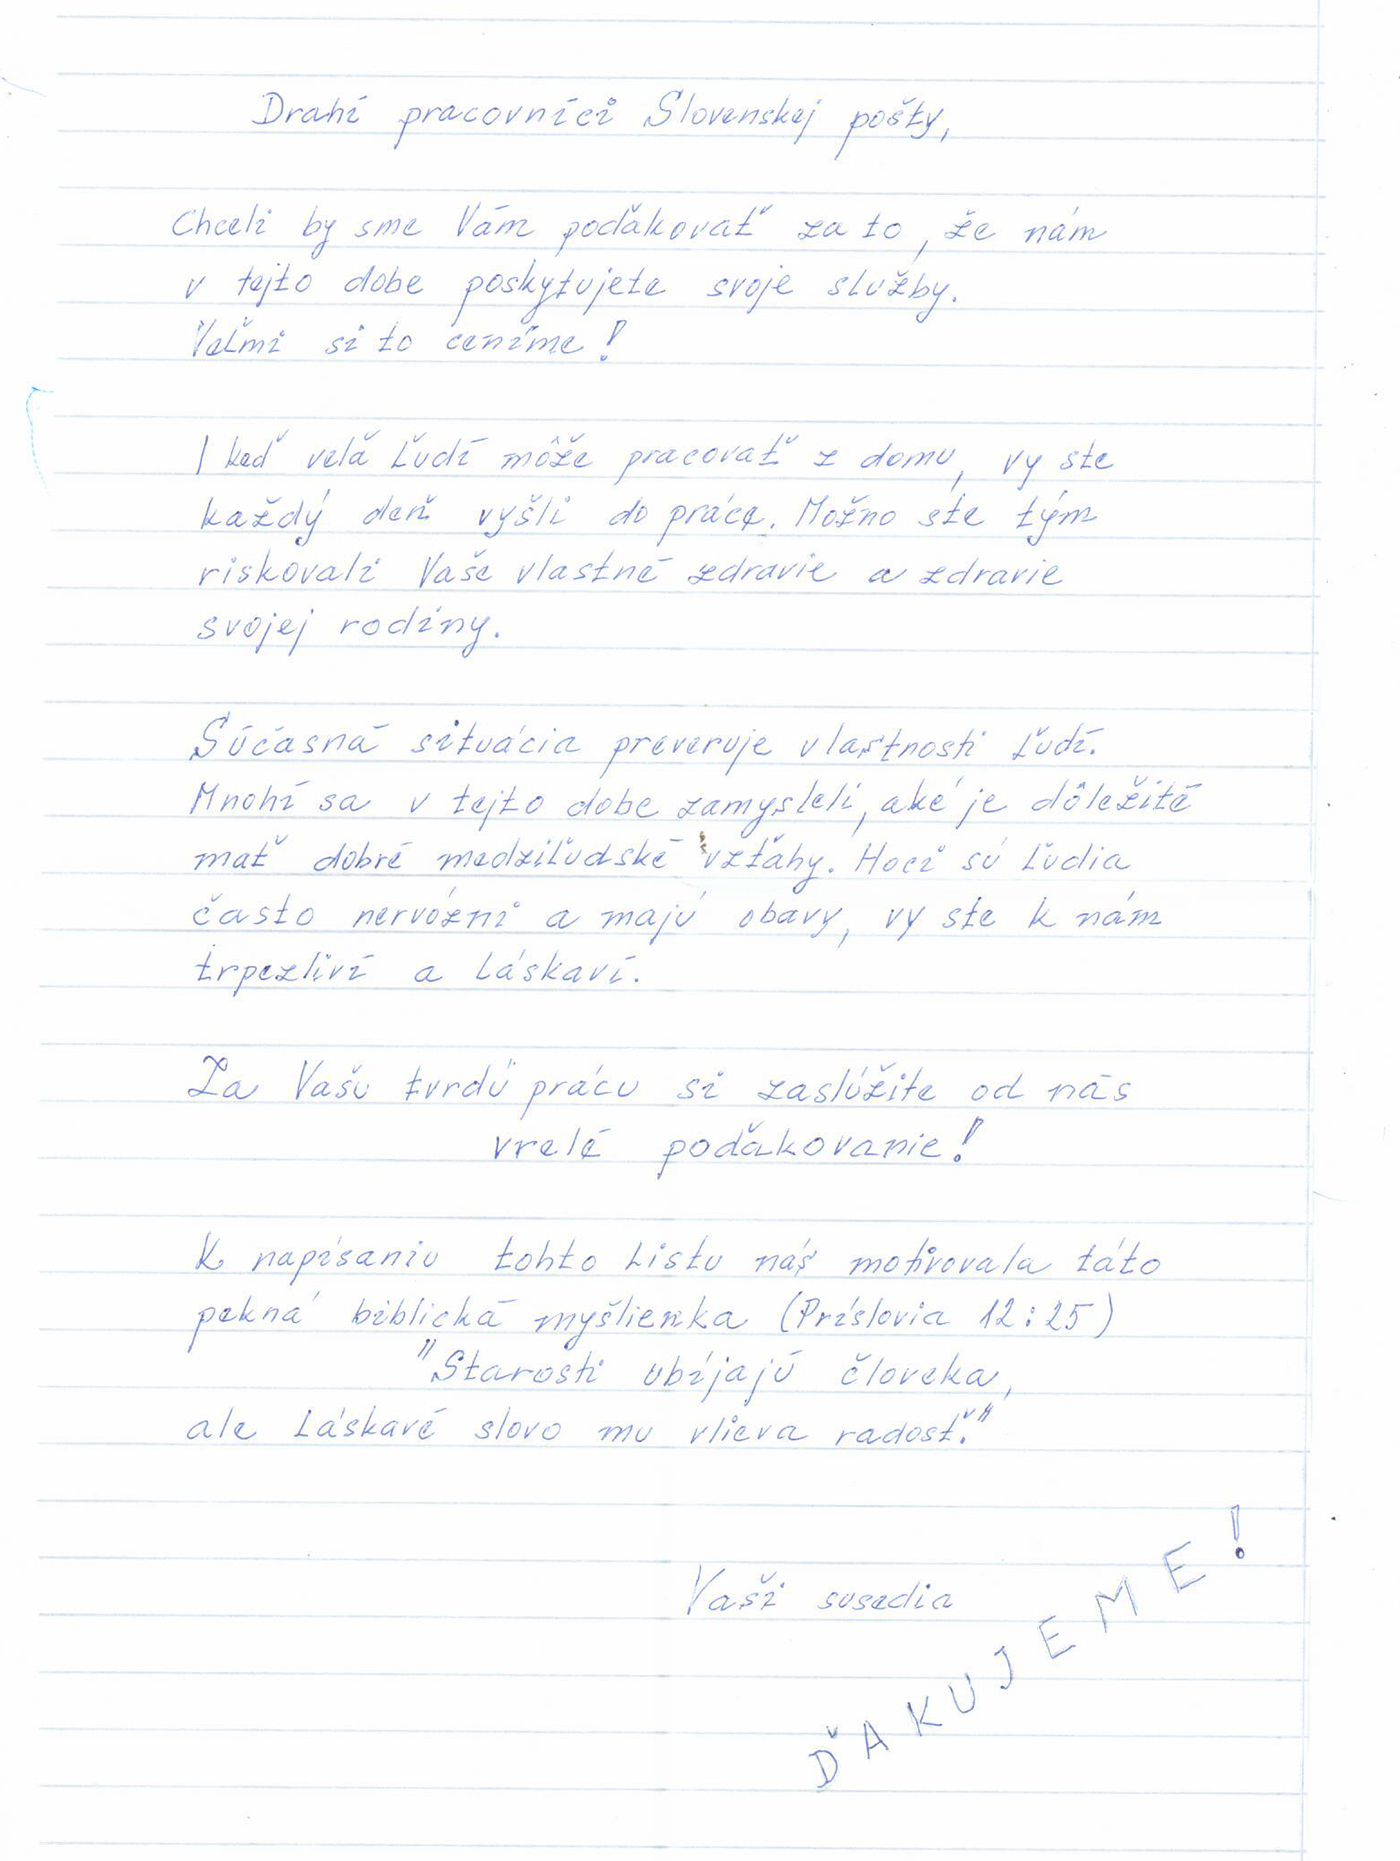 Drahí pracovníci Slovenskej pošty,
Chceli by sme Vám poďakovať za to, že nám
v tejto dobe poskytujete svoje služby.
Veľmi si to ceníme!
I keď veľa ľudí môže pracovať z domu, vy ste
každý deň vyšli do práce. Možno ste tým
riskovali Vaše vlastné zdravie a zdravie
svojej rodiny.
Súčasná situácia preveruje vlastnosti ľudí.
Mnohí sa v tejto dobe zamysleli, aké je dôležité
mať dobré medziľudské vzťahy. Hoci sú ľudia
často nervózni a majú obavy, vy ste k nám
trpezliví a láskaví.
Za Vašu tvrdú prácu si zaslúžite od nás
vrelé poďakovanie!
K napísaniu tohto listu nás motivovala táto
pekná biblická myšlienka (Príslovia 12:25)
"Starosti ubíjajú človeka,
ale láskavé slovo mu vlieva radosť."
Vaši susedia
ĎAKUJEME!